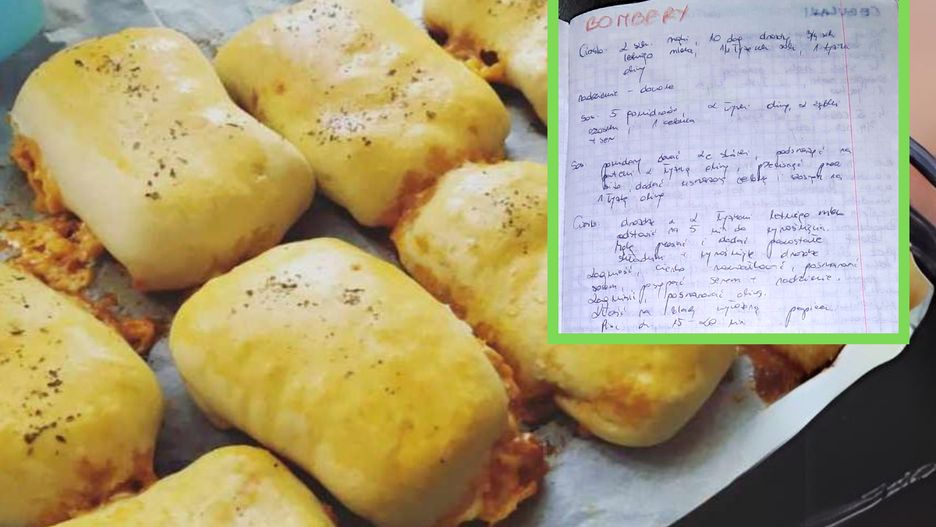 BOMBERY
Ciasto: 2 szk. mąki, 10 dag drożdży, 3/4 szk
letniego mleka, 1 łyżeczka soli, 1 łyżka
oliwy
nadzienie - dowolne
Sos: 5 pomidorów, 2 łyżki oliwy, 2 ząbki
czosnku, 1 cebula
+ ser
Sos: pomidory ze skórki, podsmażyć na
patelni z łyżką oliwy, przecisnąć przez
sito, dodać usmażoną cebulę i czosnek na
1 łyżce oliwy
Ciasto: drożdże z 2 łyżkami letniego mleka
odstawić na 5 min do wyrośnięcia.
Mąkę przesiać i dodać pozostałe
składniki + wyrośnięte drożdże
zagnieść, ciasto rozwałkować, posmarować
sosem, posypać serem + nadzienie.
Zagnieść, posmarować oliwą.
Ułożyć na blachę wyłożoną papierem.
Piec 15-20 min